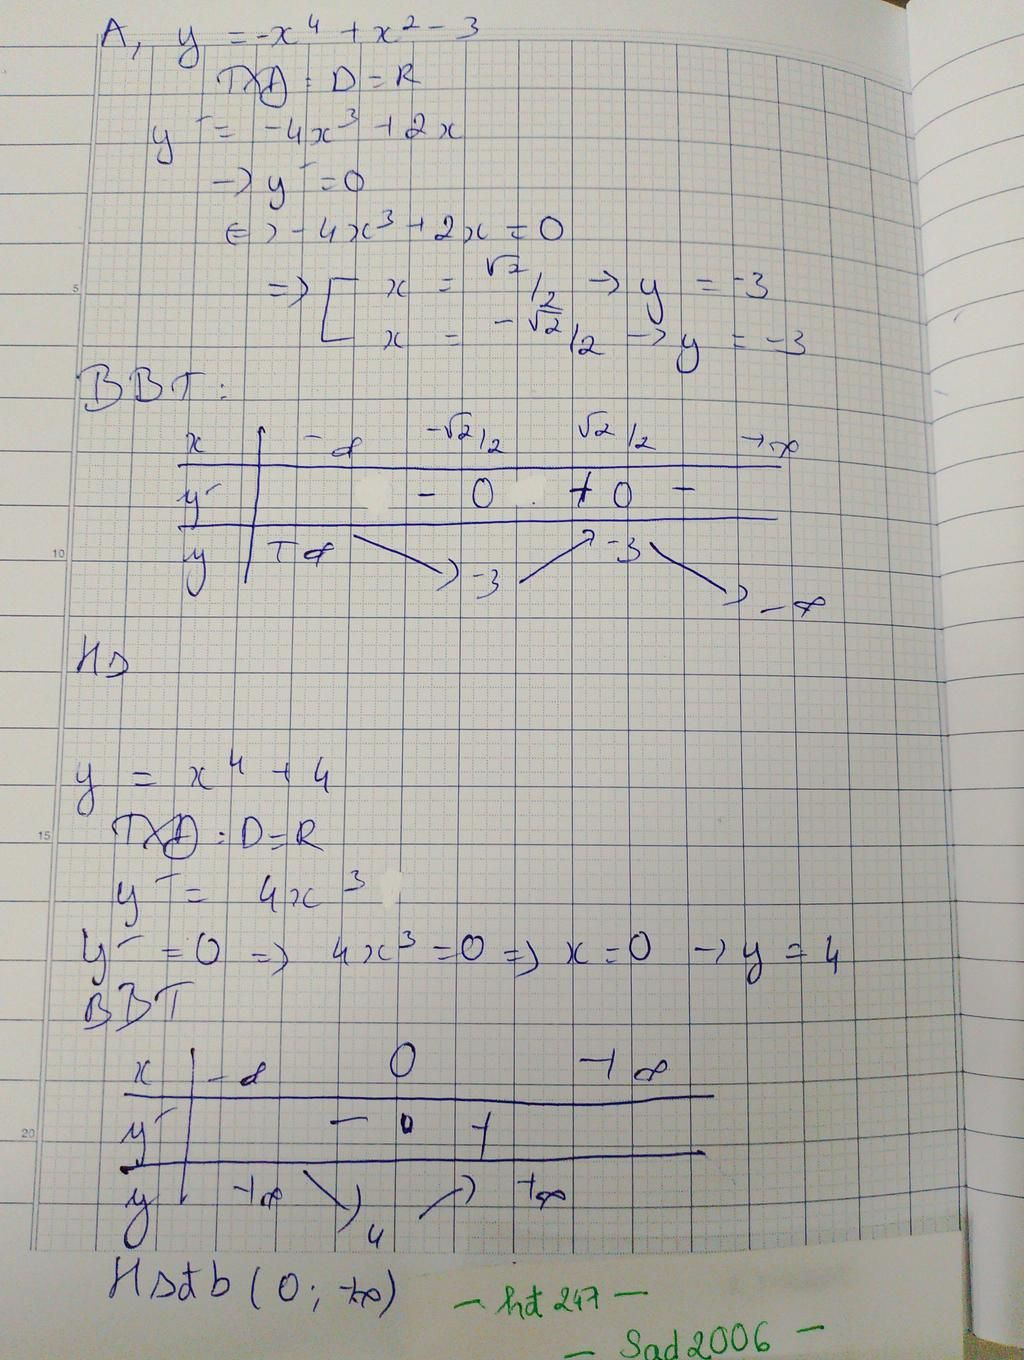 A, y = -x⁴ + x² - 3
TXĐ : D = R
y' = -4x³ + 2x
→ y' = 0
⇔ -4x³ + 2x = 0
=> [ x = √2/2 → y = -3
x = -√2/2 → y = -3
BBT :
x -∞ -√2/2 √2/2 +∞
y' - 0 + 0 -
y +∞ -3 -3 -∞
HS
y = x⁴ + 4
TXĐ : D = R
y' = 4x³
y' = 0 => 4x³ = 0 => x = 0 → y = 4
BBT
x -∞ 0 +∞
y' - 0 +
y +∞ 4 +∞
HSđb (0; +∞)
- hđ 247 -
- Sad2006 -
5
10
15
20